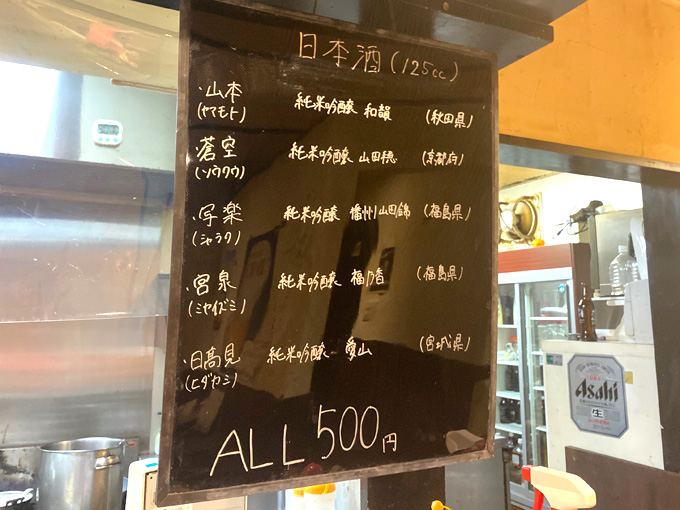 日本酒(125cc)
・山本 純米吟醸 和韻 (秋田県)
(ヤマモト)
・蒼空 純米吟醸 山田穂 (京都府)
(ソウクウ)
・写楽 純米吟醸 播州山田錦 (福島県)
(シャラク)
・宮泉 純米吟醸 福乃香 (福島県)
(ミヤイズミ)
・日高見 純米吟醸 愛山 (宮城県)
(ヒダカミ)
ALL 500円
Asahi
生